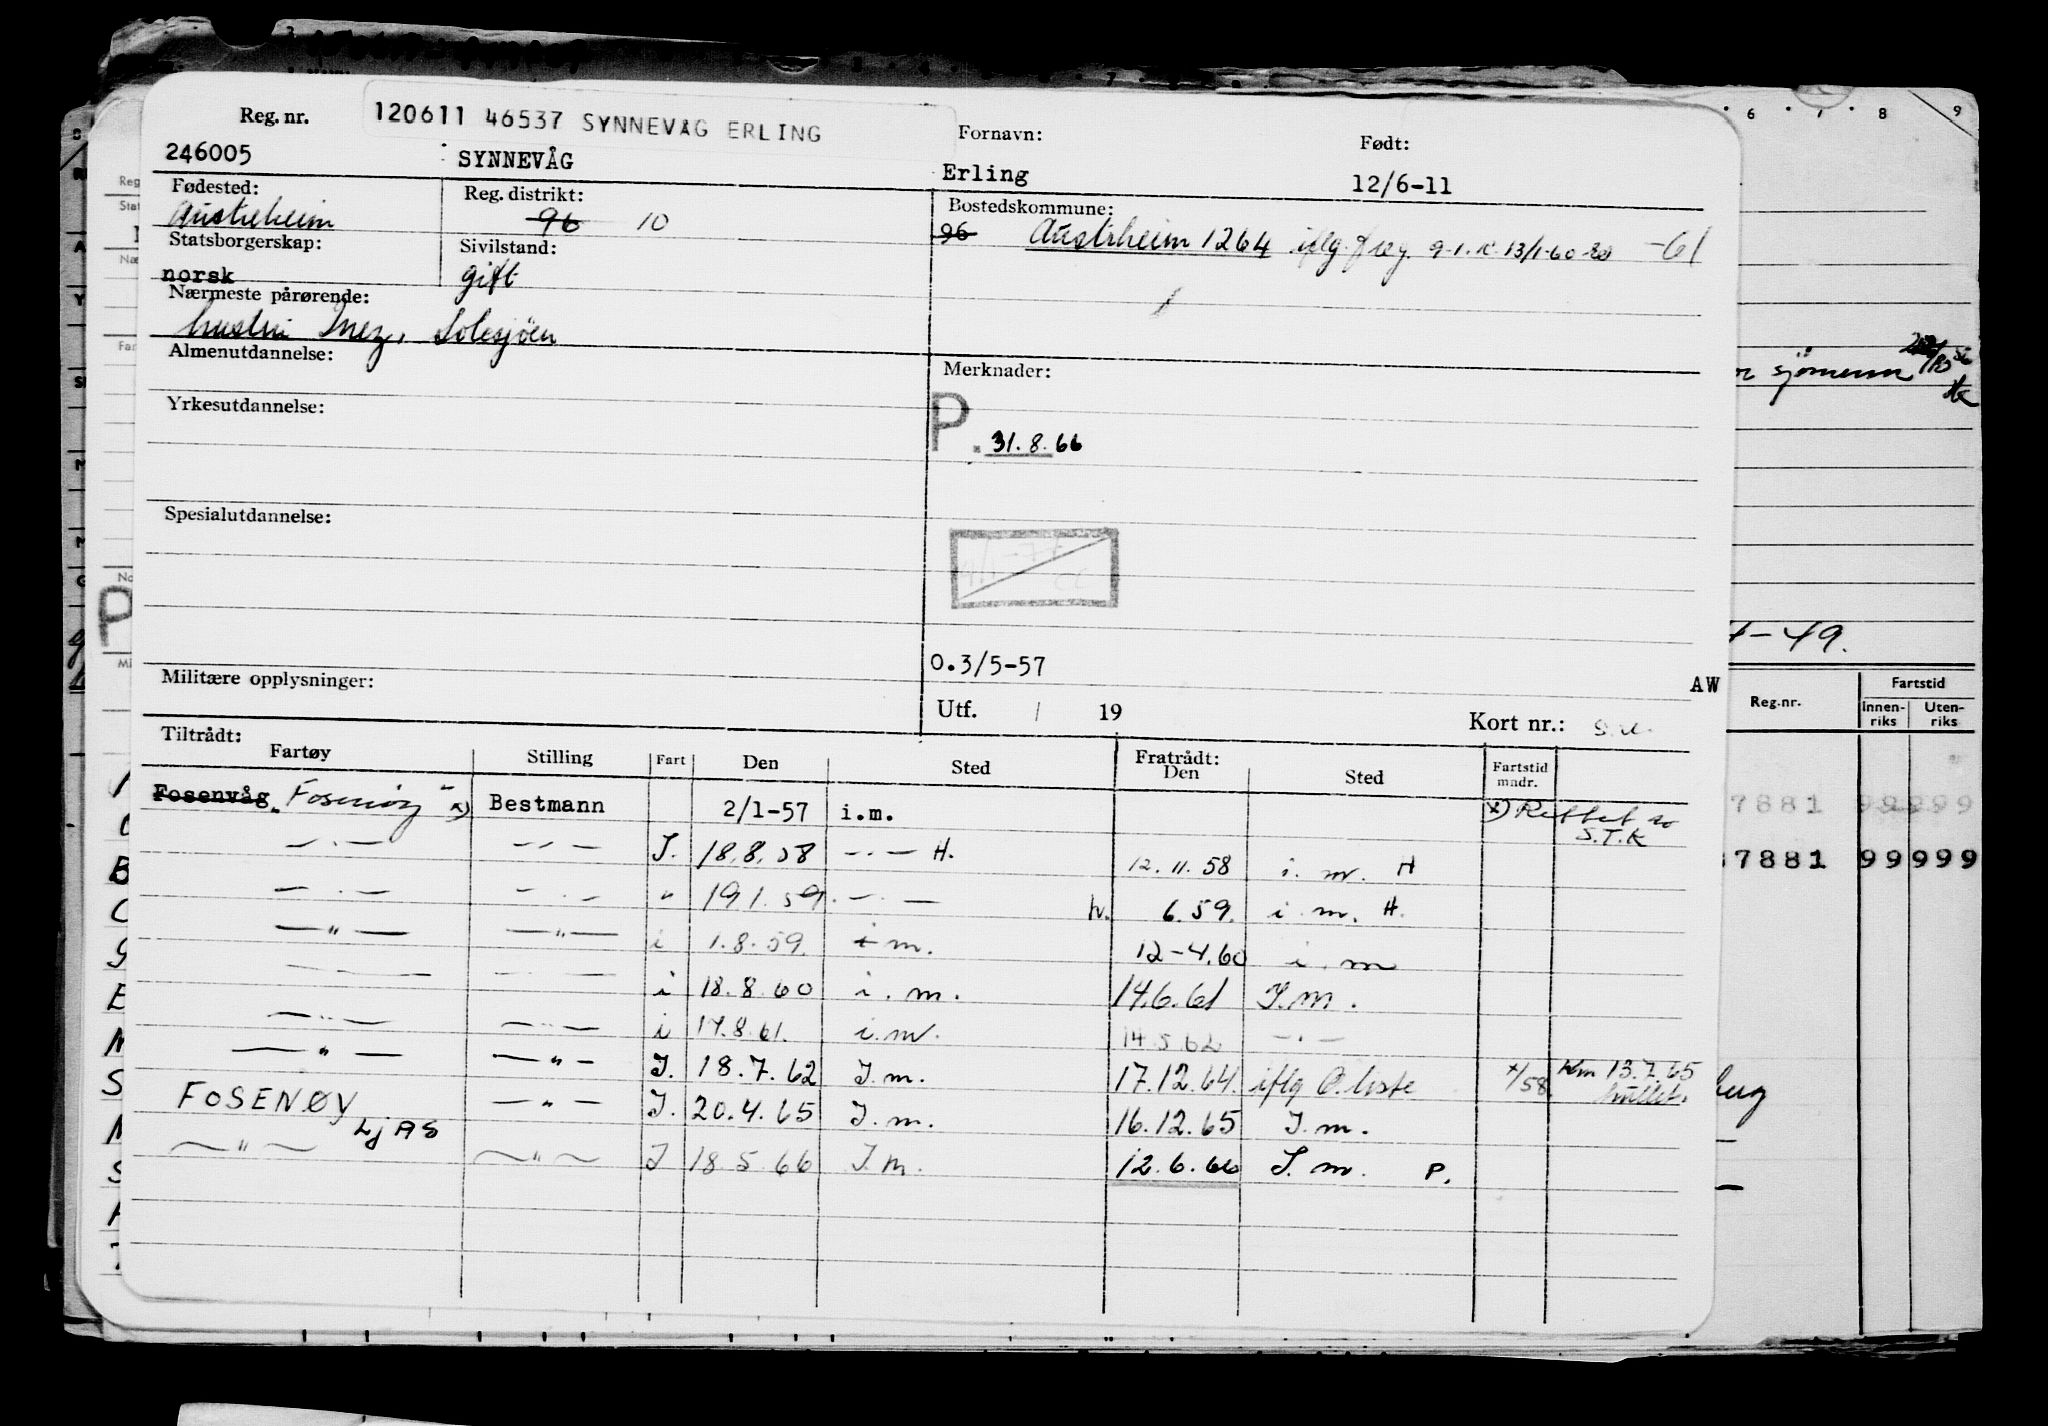 Reg. nr.
120611 46537 SYNNEVÅG ERLING
Fornavn:
Født:
246005 SYNNEVÅG Erling 12/6-11
Fødested:
Reg. distrikt:
Bostedskommune:
Austrheim 96 10
96 Austrheim 1264 iflg. freg. 9-1. 13/1-60 -61
Statsborgerskap:
Sivilstand:
norsk gift
Nærmeste pårørende:
hustru Inez, Solesjöen
Almenutdannelse:
Merknader:
Yrkesutdannelse:
P. 31.8.66
Spesialutdannelse:
0.3/5-57
Militære opplysninger:
AW
Utf. / 19
Kort nr.:
Tiltrådt:
Fartøy Stilling Fart Den Sted
Fratrådt:
Den Sted
Fartstid
mndr.
Fosenvåg "Fosenøy" x) Bestmann 2/1-57 i.m. x) Rettet
S.T.K
— . — — " — I. 18.8.58 — . — H. 12.11.58 i. m. H
— . — — . — " 19 1. 59. — . — h. 6.59. i. m. H.
— " — — " — i 1.8.59. i m. 12-4.60 i. m
i 18.8.60 i. m. 14.6.61 I.m.
— " — — " — i 17.8.61. i.m. 14 5 62 — . —
— " — — " — I. 18.7.62 I.m. 17.12.64. iflg O.liste x/58. Km 13.7.65
hullet.
FOSENØY — " — I. 20.4.65 I.m. 16.12.65 I.m.
LJAS
— " — — " — I 18.5.66 I.m. 12.6.66 I.m. P.
6 7 8 9
sjømenn
4-49.
Reg.nr.
Fartstid
Innen-
riks
Uten-
riks
7881 99999
7881 99999
berg